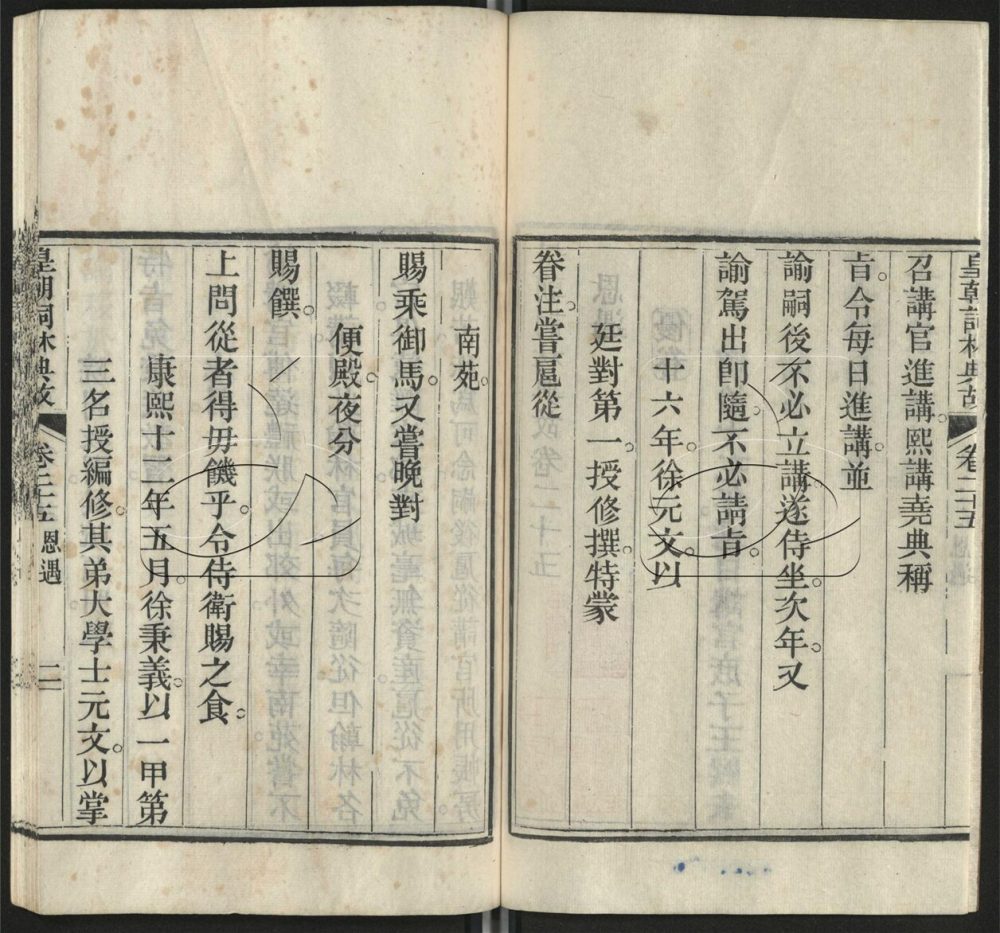 皇朝詞林典故 卷二十五
召講官進講熙講堯典稱
旨令每日進講並
諭嗣後不必立講遂侍坐次年又
諭駕出卽隨不必請旨
十六年徐元文以
廷對第一授修撰特蒙
眷注嘗扈從
南苑
賜乘御馬又嘗晚對
便殿夜分
賜饌
上問從者得毋饑乎令侍衛賜之食
康熙十二年五月徐秉義以一甲第
三名授編修其弟大學士元文以掌
皇朝詞林典故 卷二十五 恩遇 二